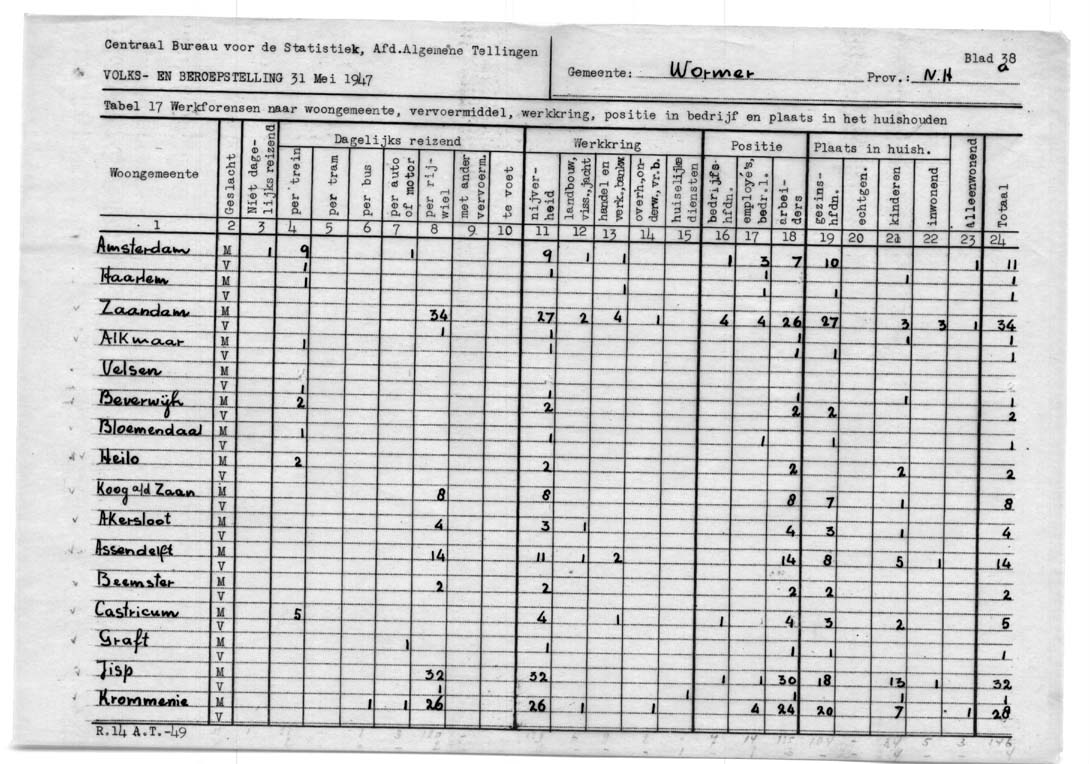 Centraal Bureau voor de Statistiek, Afd.Algemene Tellingen
VOLKS- EN BEROEPSTELLING 31 Mei 1947
Gemeente: Wormer Prov.: N.H
Blad 38 a
Tabel 17 Werkforensen naar woongemeente, vervoermiddel, werkkring, positie in bedrijf en plaats in het huishouden
Dagelijks reizend Werkkring Positie Plaats in huish.
Woongemeente Geslacht Niet dagelijks reizend per trein per tram per bus per auto of motor per rijwiel met ander vervoerm. te voet nijverheid landbouw, viss.,jacht handel en verk.,bankw overh.,onderw.,vr.b. huiselijke diensten bedrijfshfdn. employé's, bedr.l. arbeiders gezinshfdn. echtgen. kinderen inwonend Alleenwonend Totaal
1 2 3 4 5 6 7 8 9 10 11 12 13 14 15 16 17 18 19 20 21 22 23 24
Amsterdam M 1 9 1 9 1 1 1 3 7 10 1 11
V 1 1 1 1 1
Haarlem M 1 1 1 1 1
V
Zaandam M 34 27 2 4 1 4 4 26 27 3 3 1 34
V 1 1 1 1 1
Alkmaar M 1 1 1 1 1
V
Velsen M
V 1 1 1 1 1
Beverwijk M 2 2 2 2 2
V
Bloemendaal M 1 1 1 1 1
V
Heilo M 2 2 2 2 2
V
Koog a/d Zaan M 8 8 8 7 1 8
V
Akersloot M 4 3 1 4 3 1 4
V
Assendelft M 14 11 1 2 14 8 5 1 14
V
Beemster M 2 2 2 2 2
V
Castricum M 5 4 1 1 4 3 2 5
V
Graft M 1 1 1 1 1
V
Jisp M 32 32 1 1 30 18 13 1 32
V 1 1 1 1 1
Krommenie M 1 1 26 26 1 1 4 24 20 7 1 28
V
R.14 A.T.-49